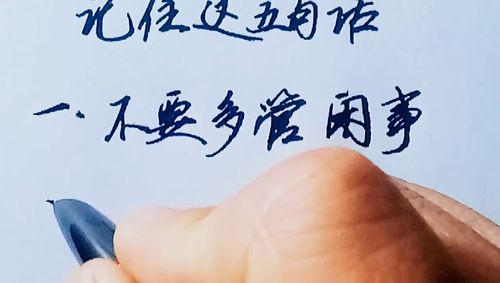 记住这五句话
一、不要多管闲事